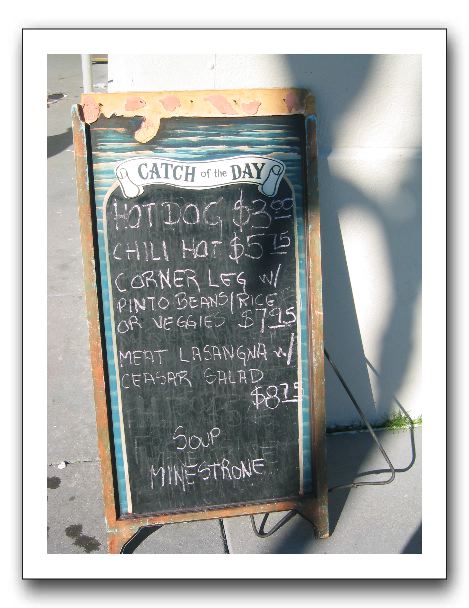 CATCH of the DAY
HOT DOG $3.00
CHILI HOT $5.75
CORNER LEG w/
PINTO BEANS/RICE
OR VEGGIES $7.95
MEAT LASANGNA w/
CEASAR SALAD
$8.75
SOUP
MINESTRONE